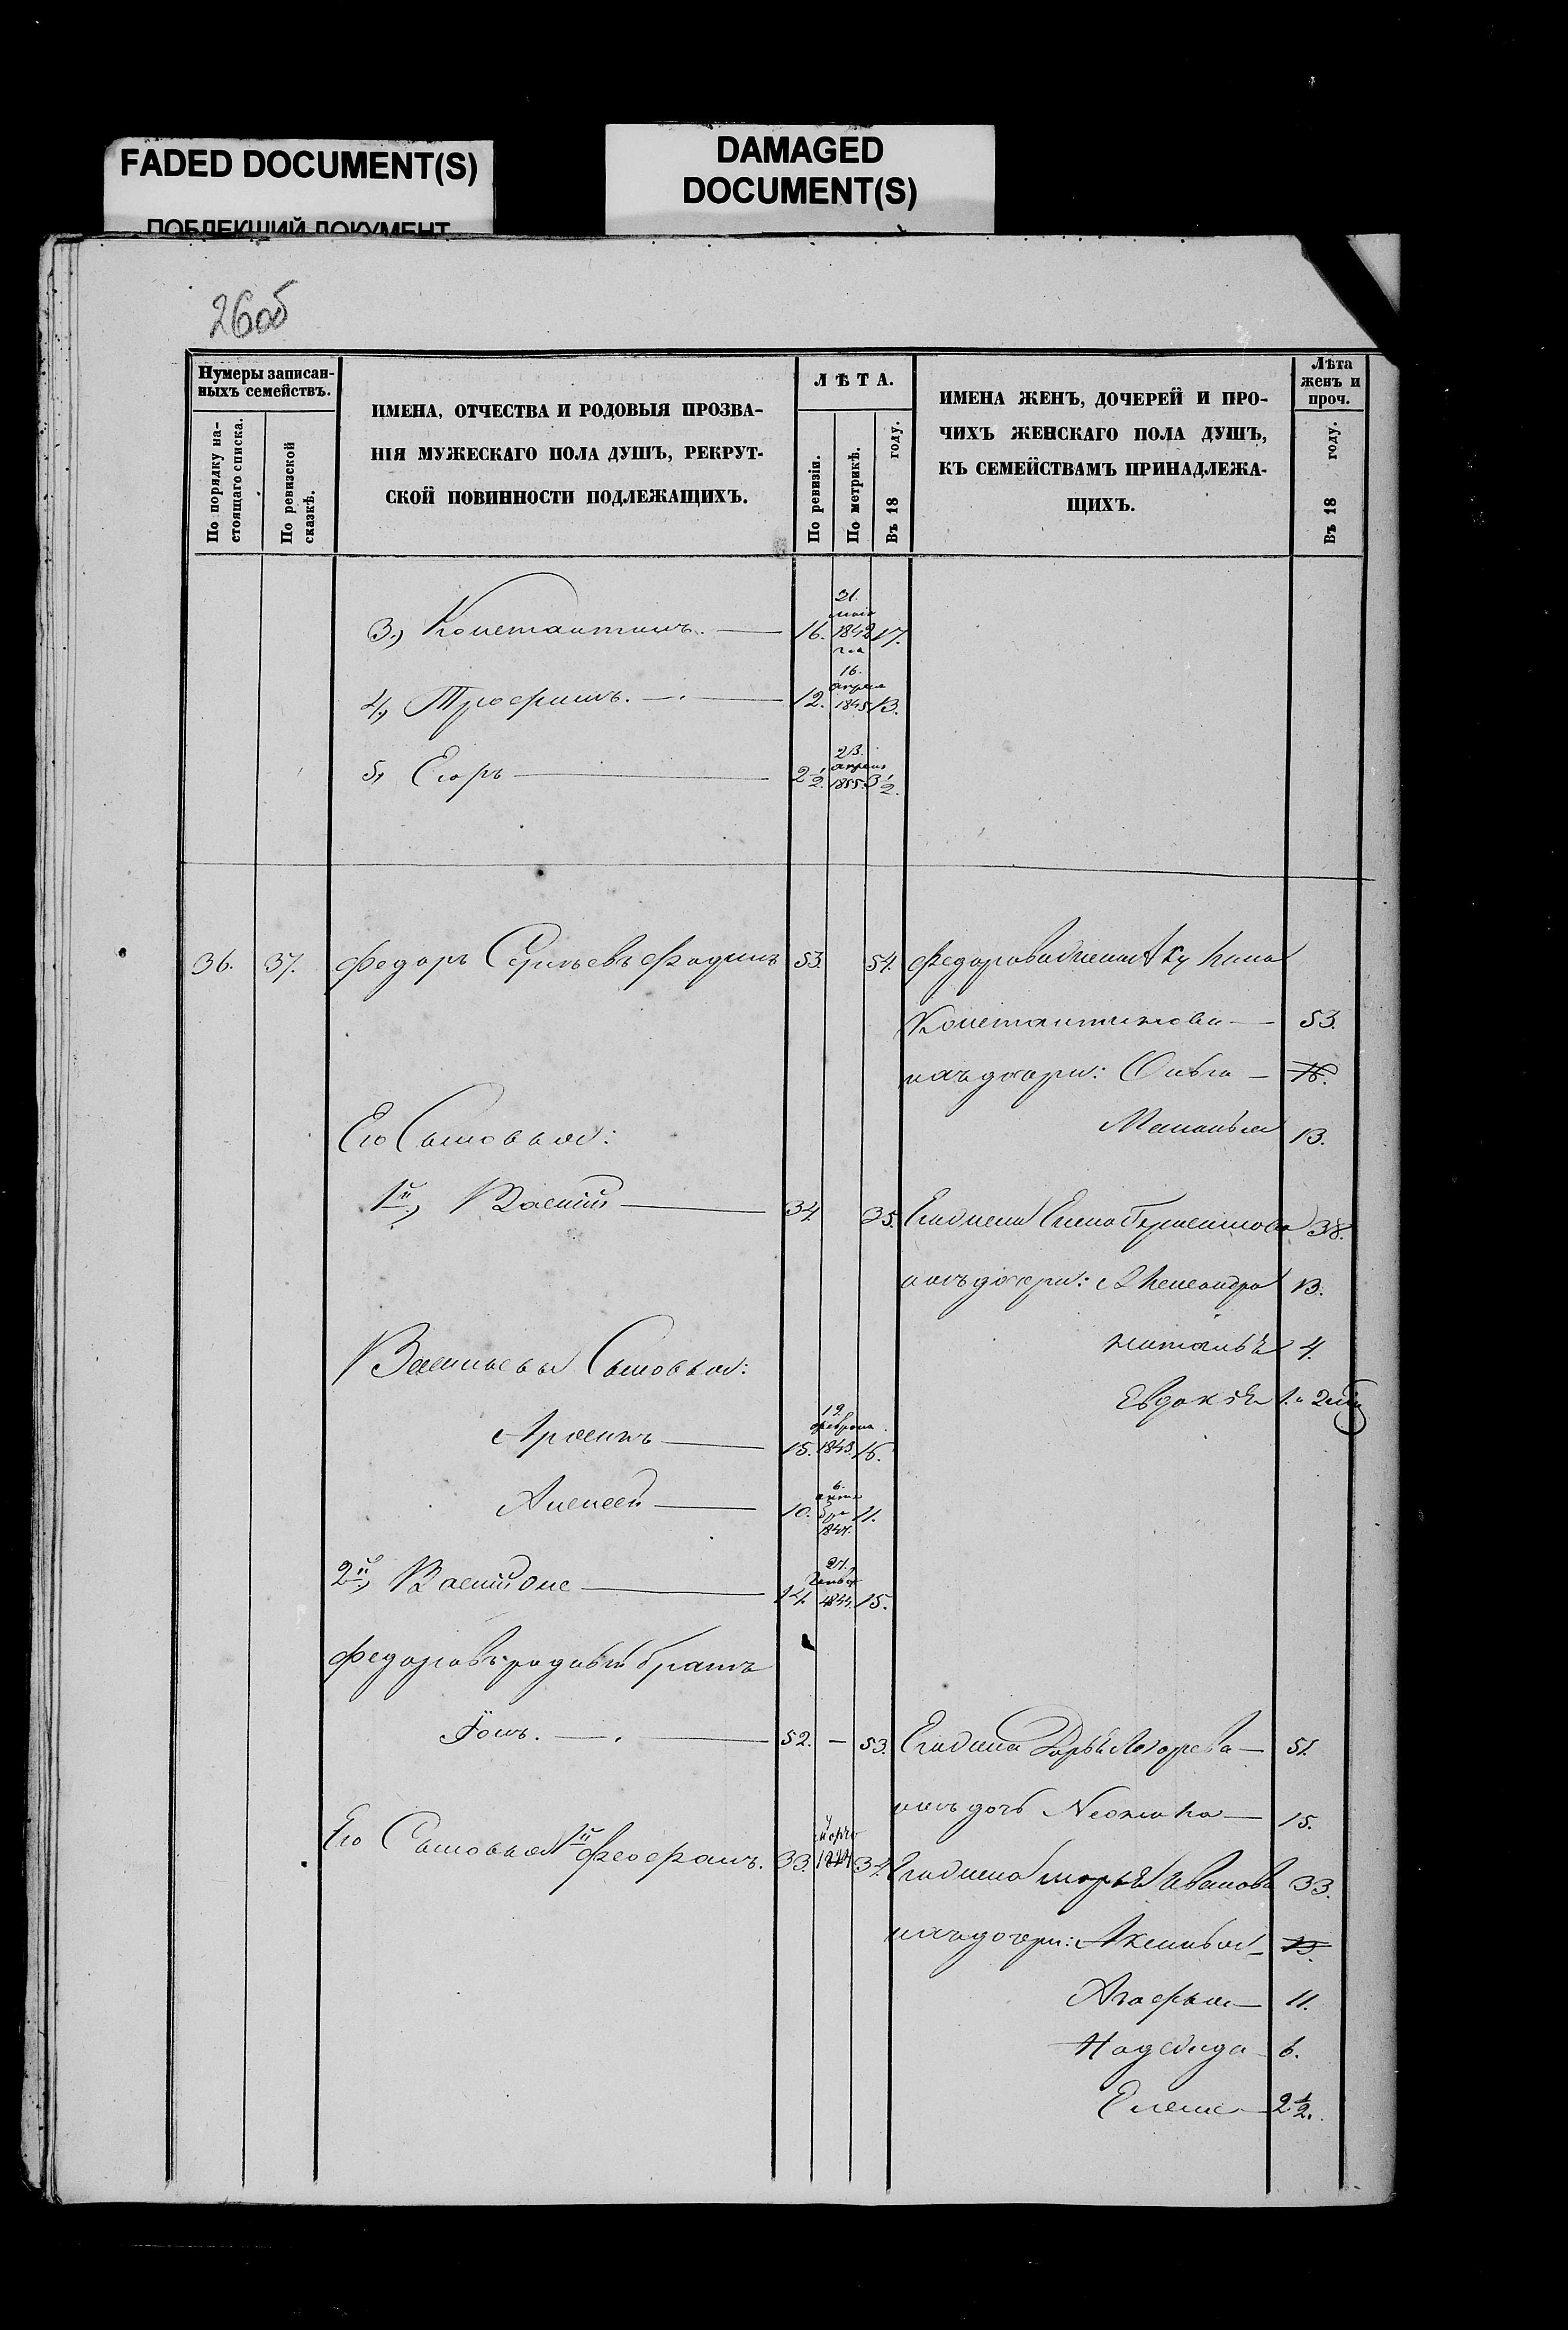 FADED DOCUMENT(S)
ПОБЛЕКШИЙ ДОКУМЕНТ
DAMAGED
DOCUMENT(S)
26об
Нумеры записан-
ныхъ семействъ.
По порядку на-
стоящаго списка.
По ревизской
сказкѣ.
ИМЕНА, ОТЧЕСТВА И РОДОВЫЯ ПРОЗВА-
НІЯ МУЖЕСКАГО ПОЛА ДУШЪ, РЕКРУТ-
СКОЙ ПОВИННОСТИ ПОДЛЕЖАЩИХЪ.
ЛѢТА.
По ревизіи.
По метрикѣ.
Въ 18 году.
ИМЕНА ЖЕНЪ, ДОЧЕРЕЙ И ПРО-
ЧИХЪ ЖЕНСКАГО ПОЛА ДУШЪ,
КЪ СЕМЕЙСТВАМЪ ПРИНАДЛЕЖА-
ЩИХЪ.
Лѣта
женъ и
проч.
Въ 18 году.
3,) Константинъ. — 16. 21. маія 1842 17.
4,) Трофимъ. — 12. 16. апреля 1845 13.
5, Егоръ — 2 1/2. 23. апреля 1855 3 1/2.
36. 37. Федоръ 53. 54. Федорова жена
Константинова — 53.
ихъ дочери: Ольга — 16.
Маланья 13.
Его Сыновья:
1й,) Василій — 34. 35. Его жена Елена Герасимова 38.
ихъ дочери: Александра 13.
Наталья 4.
Евдокія
Васильевы Сыновья:
— 15. 19. февраля 1843. 16.
Алексей — 10. 6. октября 1847. 11.
2й,) — 14. 27. 1844. 15.
Федоровъ родный братъ
52. — 53. Его жена Дарья — 51.
ихъ дочь — 15.
Его Сыновья 1й Феофанъ. 33. 34. Его жена Марья Иванова 33.
ихъ дочери: Аксинья —
Агафья — 11.
Надежда — 6.
Елена — 2 1/2.